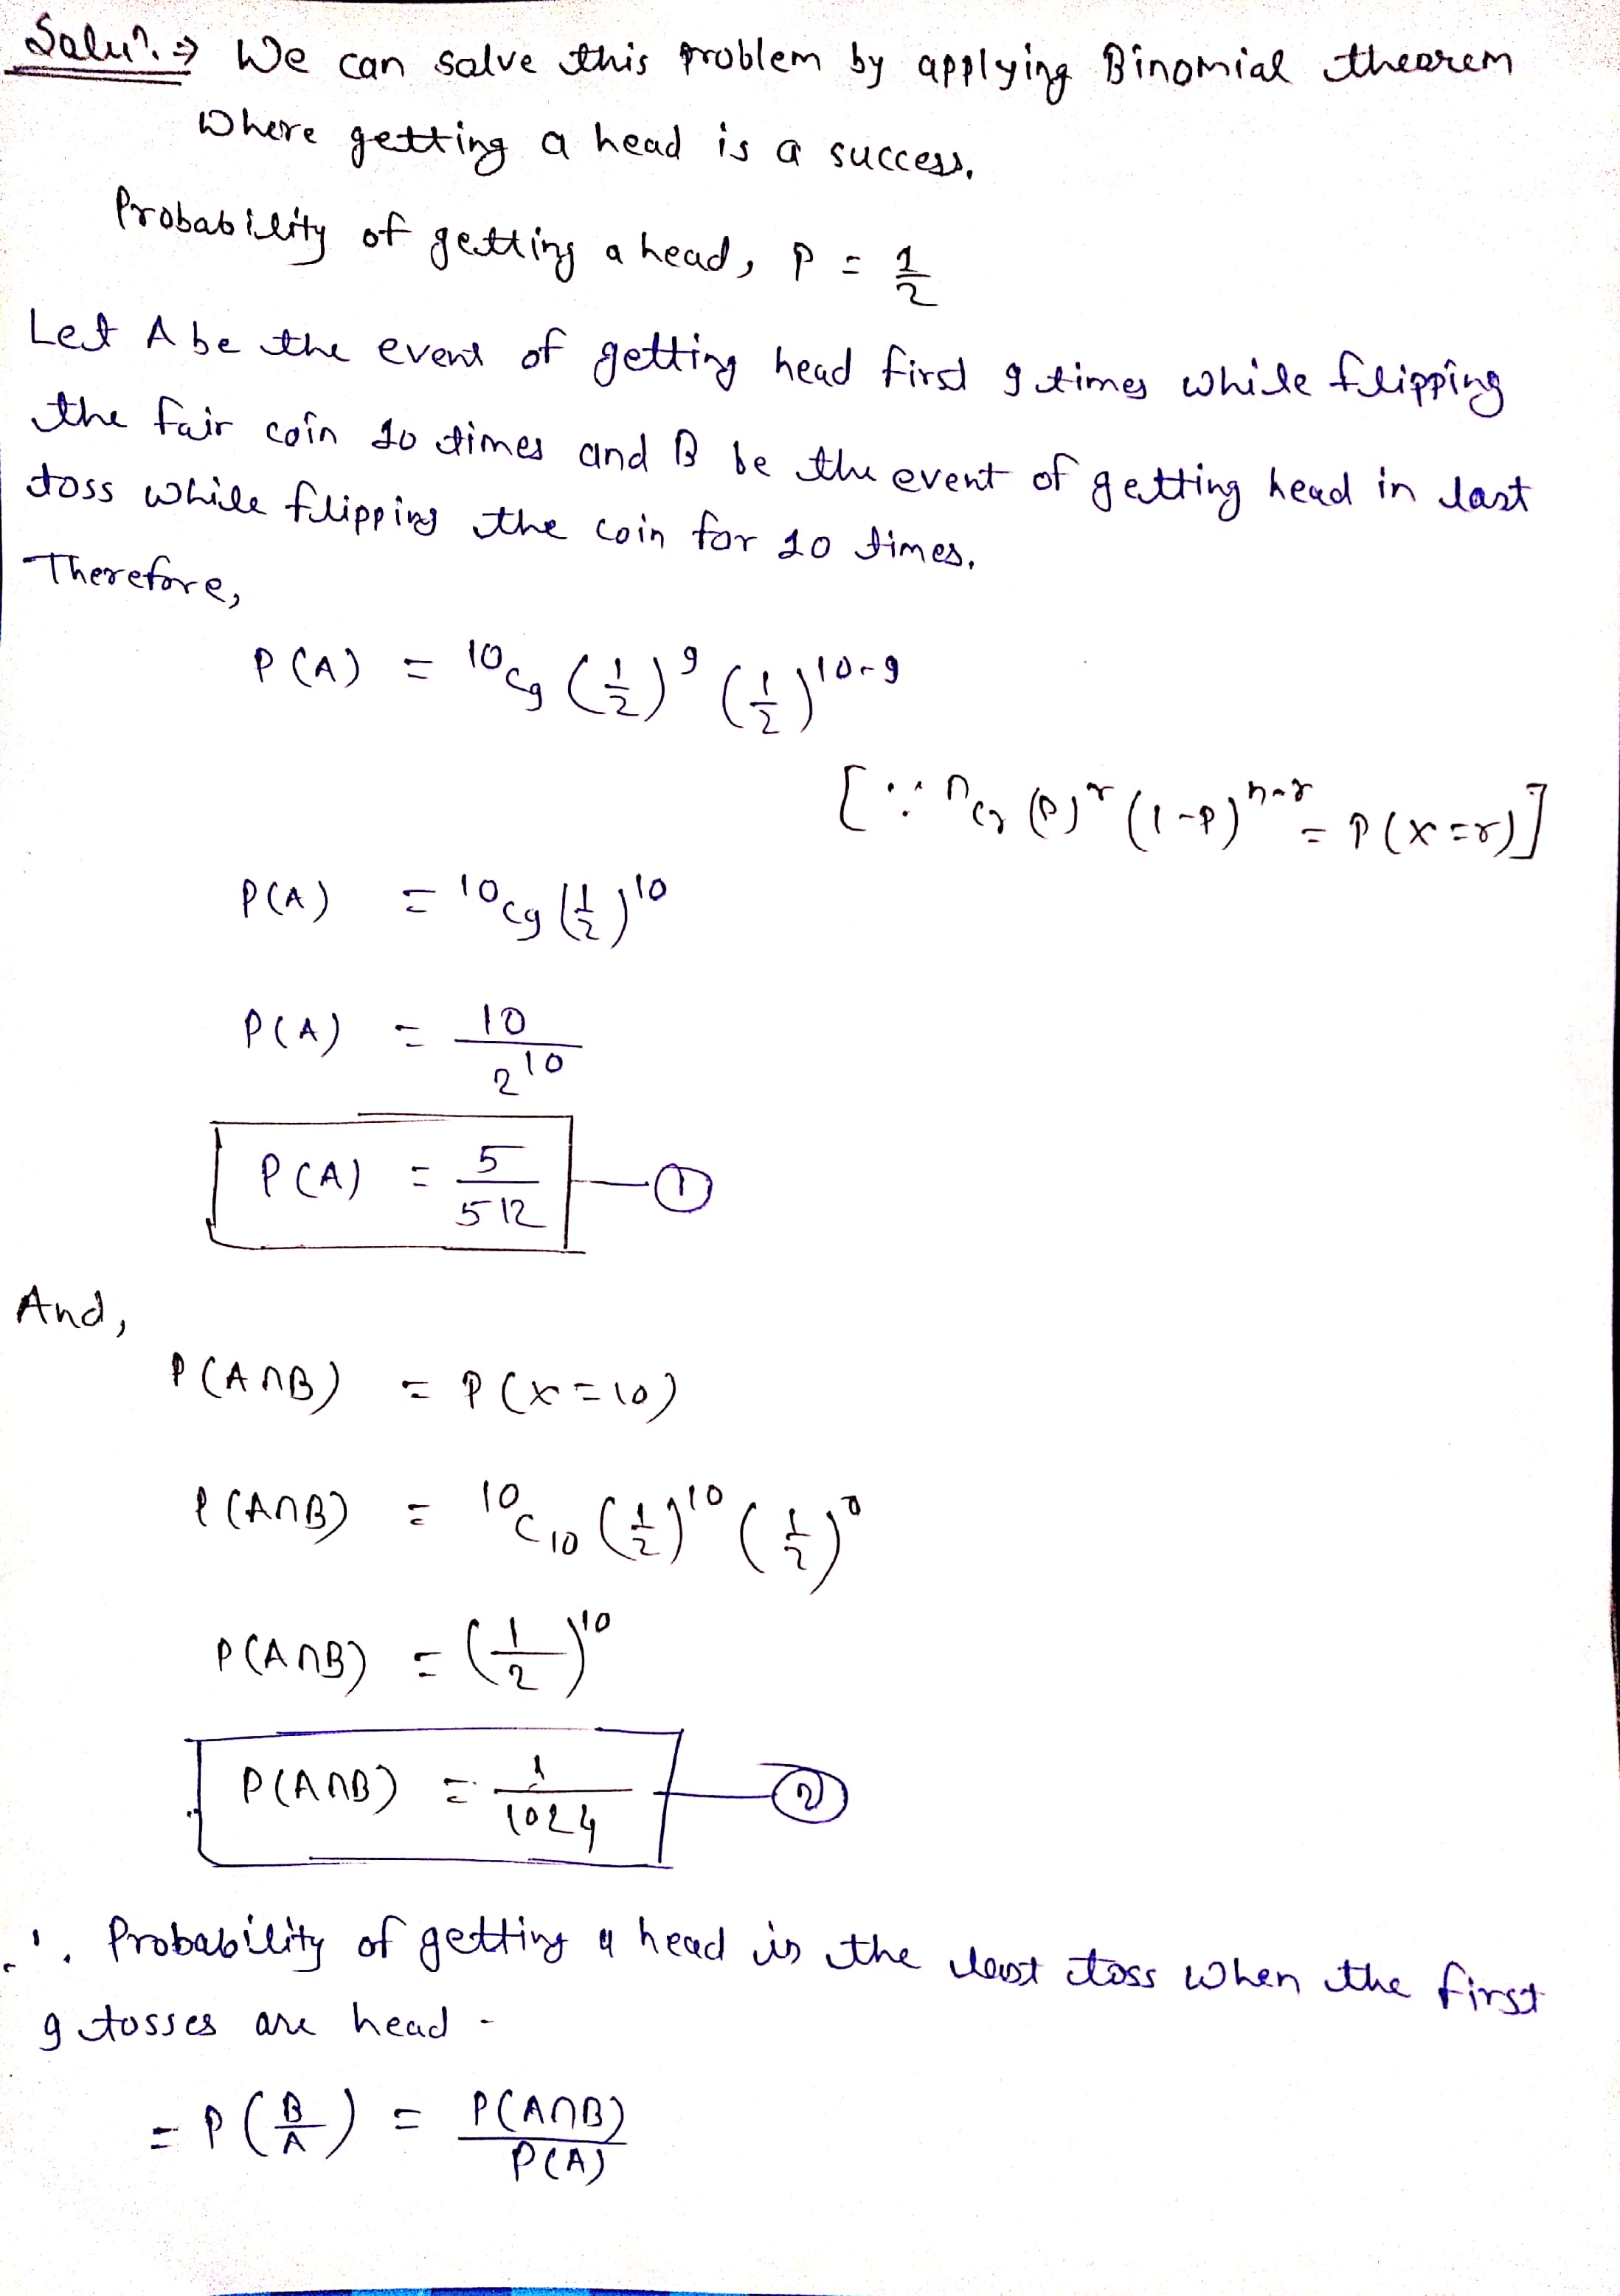 Solun. ⇒ We can solve this problem by applying Binomial theorem
Where getting a head is a success.
Probability of getting a head, P = 1/2
Let A be the event of getting head first 9 times while flipping
the fair coin 10 times and B be the event of getting head in last
toss while flipping the coin for 10 times.
Therefore,
P(A) = ¹⁰C₉ (1/2)⁹ (1/2)¹⁰⁻⁹
[∵ ⁿCᵣ (P)ʳ (1-P)ⁿ⁻ʳ = P(x=r)]
P(A) = ¹⁰C₉ (1/2)¹⁰
P(A) = 10/2¹⁰
P(A) = 5/512 — ①
And,
P(A∩B) = P(x=10)
P(A∩B) = ¹⁰C₁₀ (1/2)¹⁰ (1/2)⁰
P(A∩B) = (1/2)¹⁰
P(A∩B) = 1/1024 — ②
∴ Probability of getting a head in the last toss when the first
9 tosses are head -
= P(B/A) = P(A∩B)/P(A)